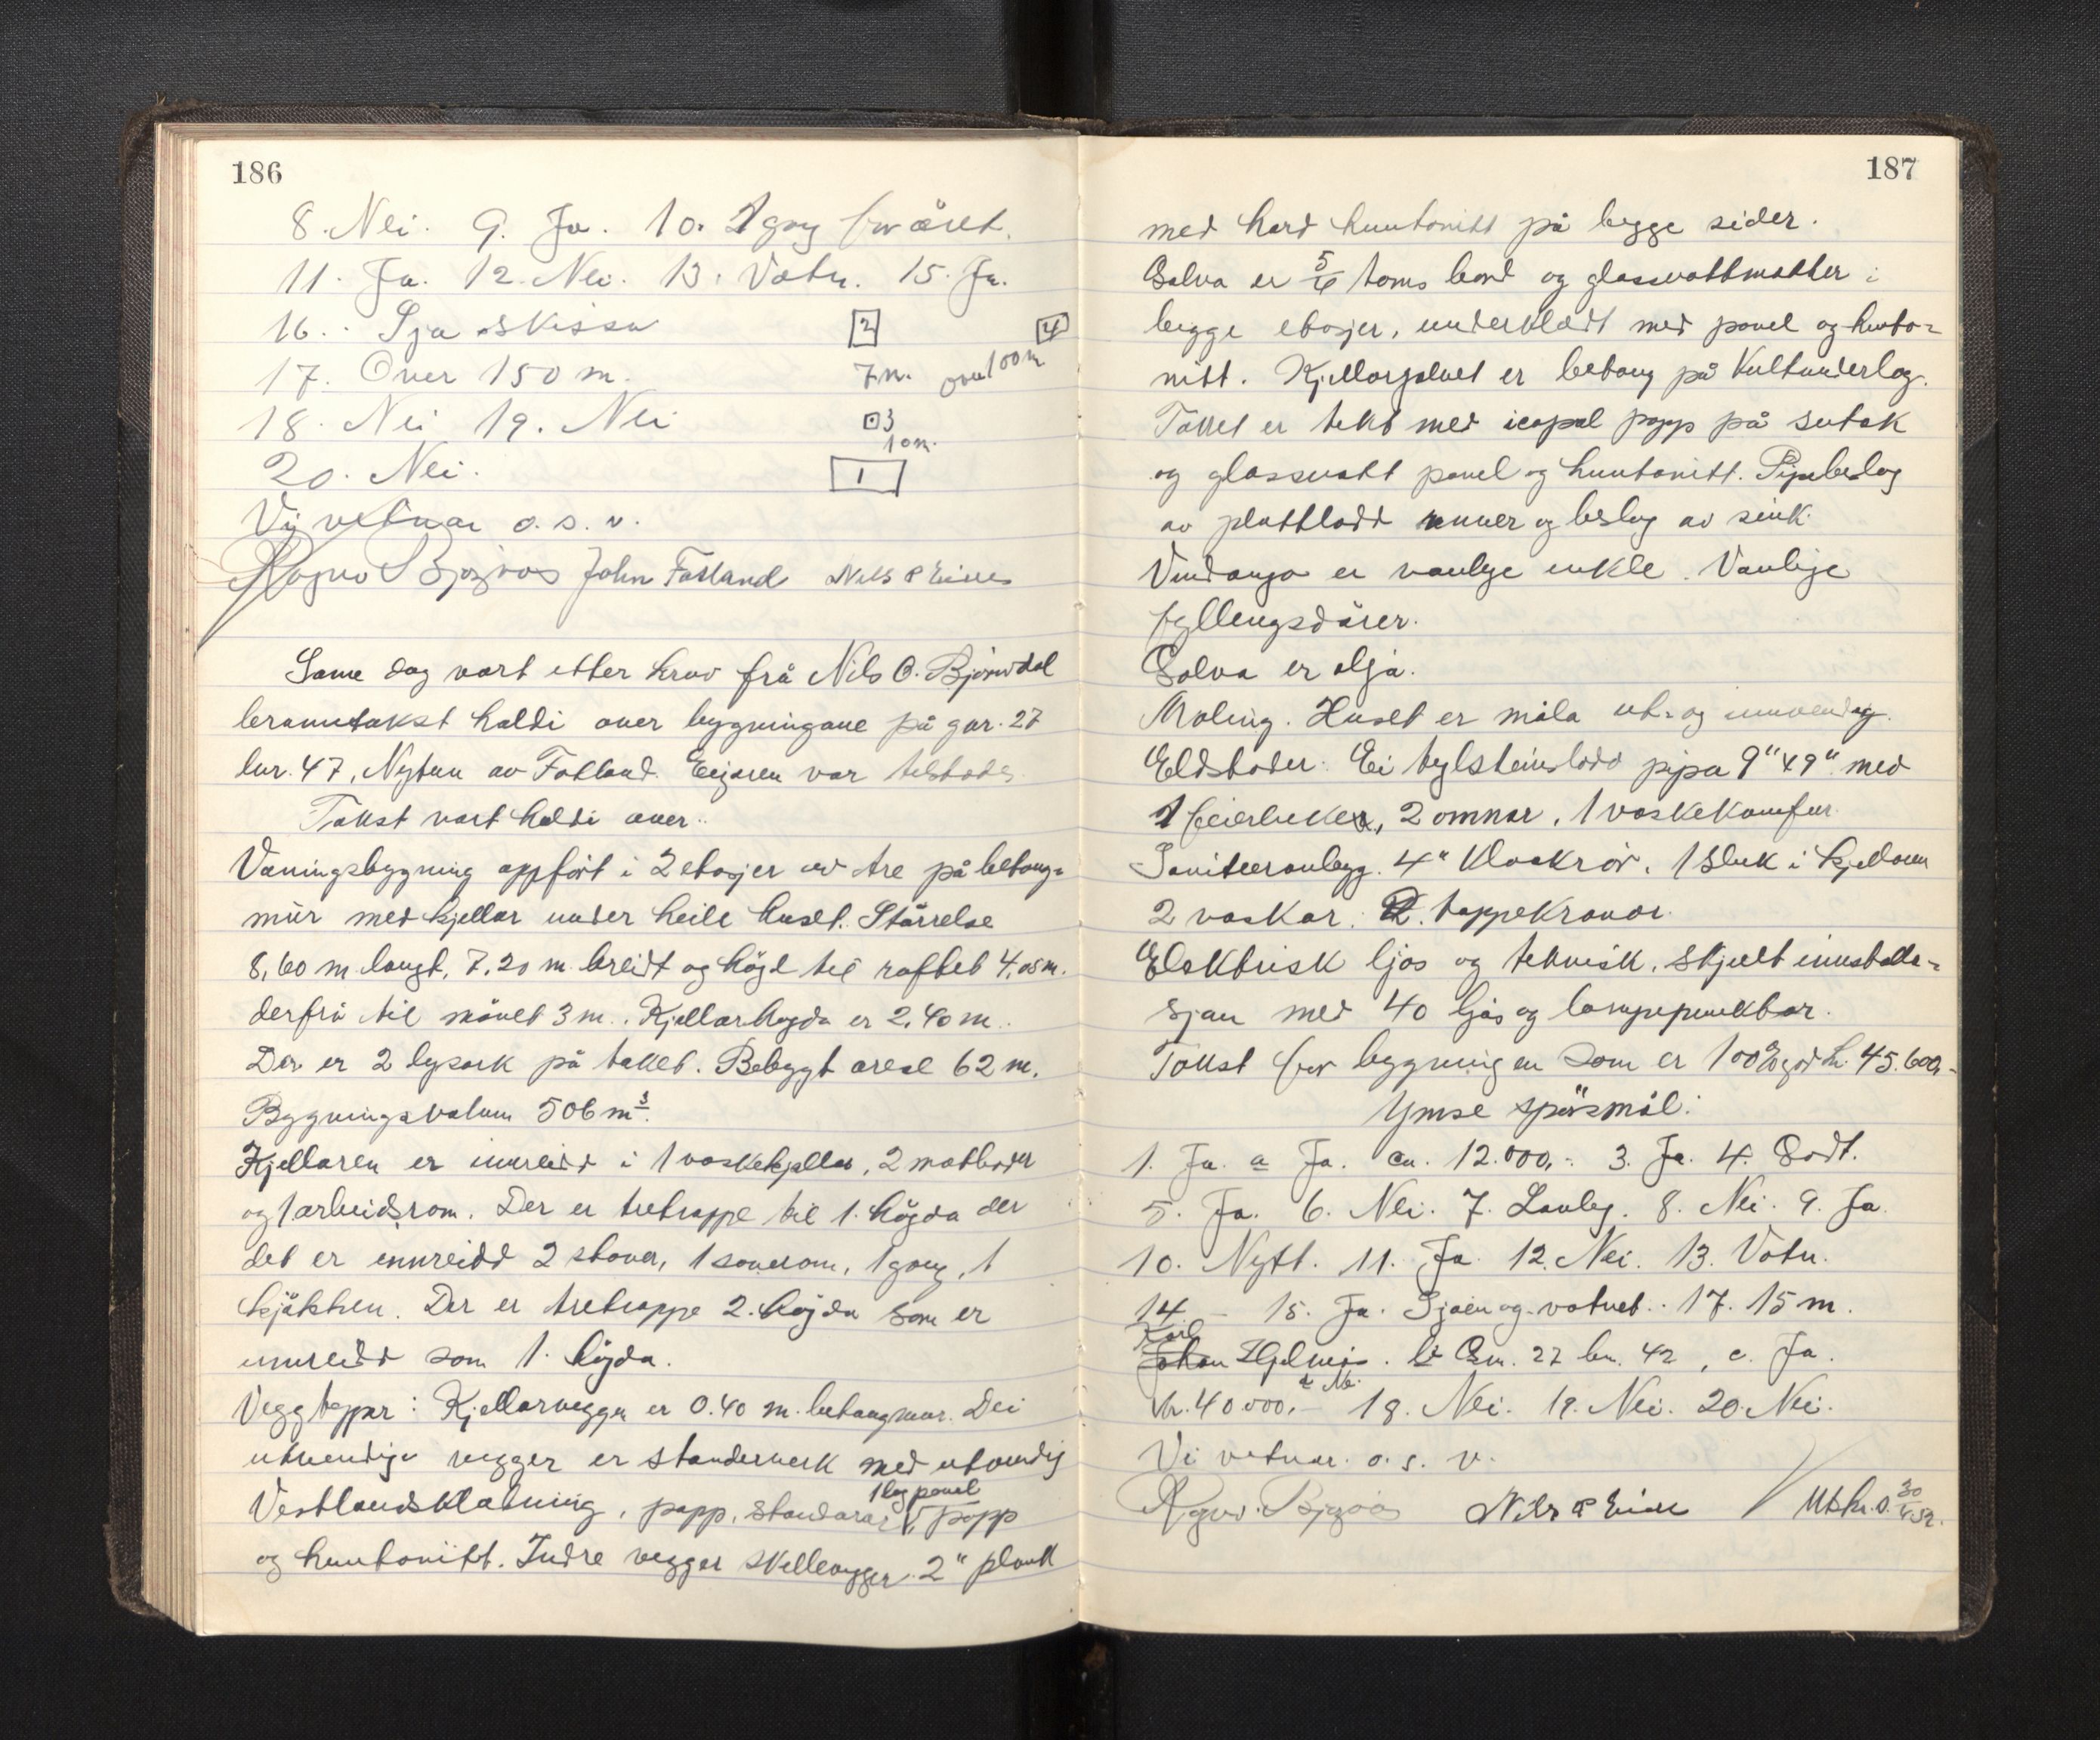 186
8. Nei. 9. Ja. 10. 1 gong for året.
11. Ja. 12. Nei. 13. Vatn. 15. Ja.
16. Sja skissa 2 4
17. Over 150 m. 7 m. over 100 m
18. Nei 19. Nei 3
10 m.
20. Nei. 1
Vi vitnar o. s. v.
John Fotland Nils
Same dag vart etter krav frå Nils O. Bjørndal
branntakst haldi over bygningane på gnr. 27
bnr. 47, Nytun av Fotland. Eigaren var tilstades.
Takst vart haldi over:
Vaningsbygning oppført i 2 etasjer av tre på betong-
mur med kjellar under heile huset. Størrelse
8,60 m langt, 7,20 m breidt og høgd til raftet 4,05 m.
derfrå til mønet 3 m. Kjellarhøgda er 2,40 m.
Der er 2 lysark på taket. Bebygt areal 62 m.
Bygningsvolum 506 m³.
Kjellaren er innreidd i 1 vaskekjellar, 2 matboder
og 1 arbeidsrom. Der er tretrappe til 1. høgda der
det er innreidd 2 stover, 1 soverom, 1 gong, 1
kjøkken. Der er tretrappe 2. høgda som er
innreidd som 1. høgda.
Veggtyper: Kjellarvegger er 0.40 m. betongmur. Dei
utvendige vegger er standerverk med utvendig
1 lag panel
Vestlandsklædning, papp, standarar V papp
og huntonitt. Indre vegger skillevegger 2" plank
187
med hard huntonitt på begge sider.
Golva er 5/4 toms bord og glassvattmatter i
begge etasjer, underklædt med panel og hunto-
nitt. Kjellargolvet er betong på kultunderlag.
Taket er tekt med icopal papp på sutak
og glassvatt panel og huntonitt. Pipebeslag
av plattladd renner og beslag av sink.
Vindauga er vanlege enkle. Vanlige
fyllingsdører.
Golva er olja.
Maling. Huset er måla ut- og innvendig.
Eldstader: Ei teglsteinsladd pipa 9"x9" med
1 feierluke, 2 omnar, 1 vaskekomfur.
Sanitæranlegg. 4" kloakrør, 1 sluk i kjellaren
2 vaskar. 2. tappekranar.
Elektrisk ljos og teknisk. Skjult innstalla-
sjon med 40 ljos og lampepunktar.
Takst for bygningen som er 100% god kr. 45.600,-
Ymse spørsmål:
1. Ja. a Ja. ca. 12.000,- 3. Ja. 4. Godt.
5. Ja. 6. Nei. 7. Lauleg. 8. Nei. 9. Ja.
10. Nytt. 11. Ja. 12. Nei. 13. Vatn.
14 - 15. Ja. Sjøen og vatnet. 17. 15 m.
Karl
Johan b Gm. 27 bn. 42, c. Ja.
d Nei.
kr. 40 000,- 18. Nei. 19. Nei. 20. Nei.
Vi vitnar. o. s. v.
Nils Utskr. d. 30